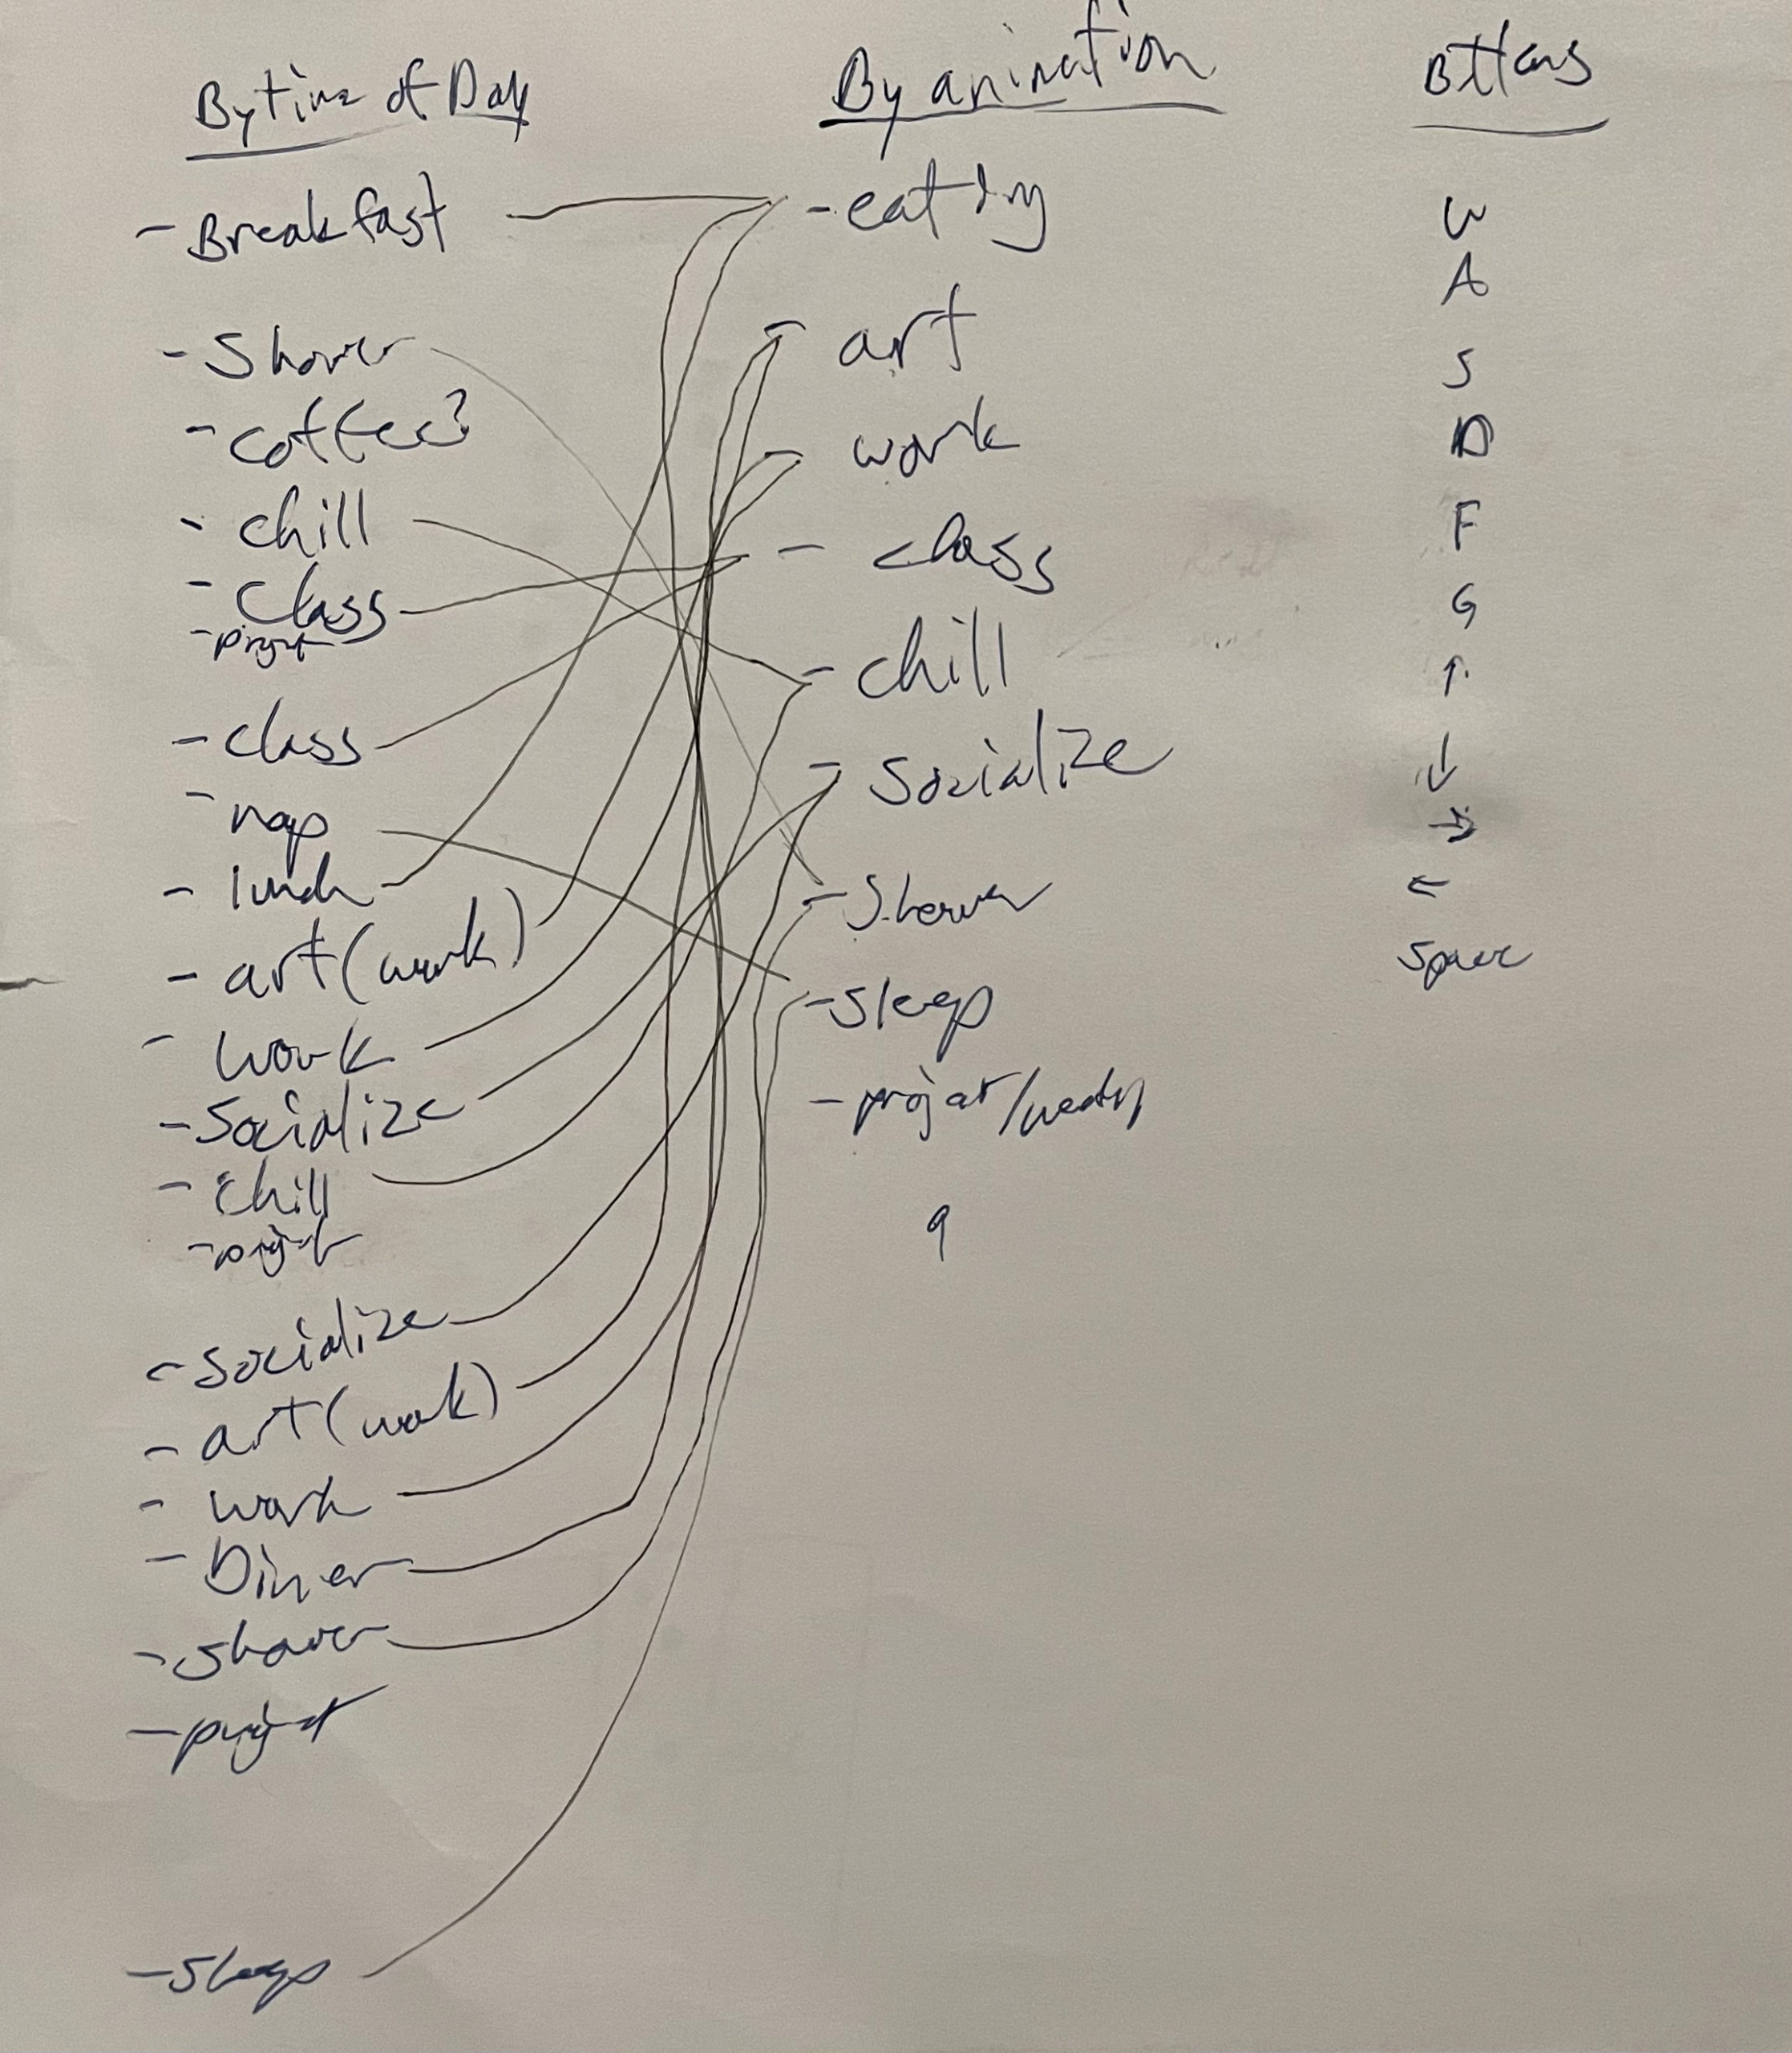 By time of Day
- Breakfast
- Shower
- coffee?
- chill
- Class
- project
- class
- nap
- lunch
- art (work)
- work
- Socialize
- chill
- project
- Socialize
- art (work)
- work
- Diner
- Shower
- project
- Sleep
By animation
- eating
- art
- work
- class
- chill
- Socialize
- Shower
- Sleep
- project/
9
Bttons
W
A
S
D
F
G
↑
↓
→
←
Space